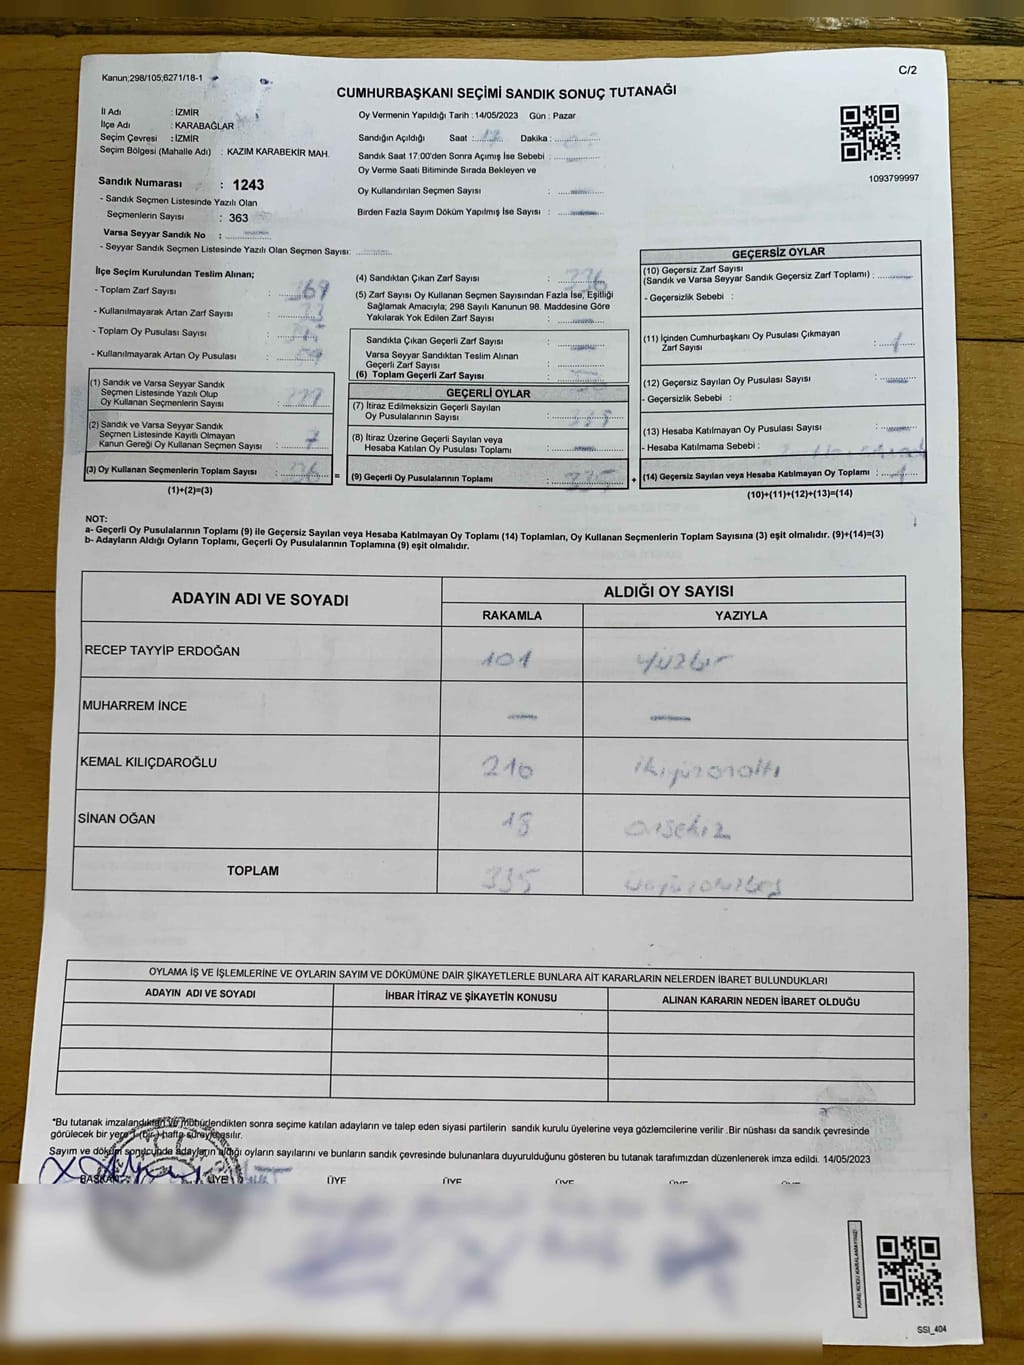 Kanun;298/105;6271/18-1
C/2
CUMHURBAŞKANI SEÇİMİ SANDIK SONUÇ TUTANAĞI
İl Adı : İZMİR
İlçe Adı : KARABAĞLAR
Seçim Çevresi : İZMİR
Seçim Bölgesi (Mahalle Adı) : KAZIM KARABEKİR MAH.
Sandık Numarası : 1243
- Sandık Seçmen Listesinde Yazılı Olan
Seçmenlerin Sayısı : 363
Varsa Seyyar Sandık No :
- Seyyar Sandık Seçmen Listesinde Yazılı Olan Seçmen Sayısı:
Oy Vermenin Yapıldığı Tarih : 14/05/2023 Gün : Pazar
Sandığın Açıldığı Saat : 17 Dakika :
Sandık Saat 17:00'den Sonra Açımış İse Sebebi :
Oy Verme Saati Bitiminde Sırada Bekleyen ve
Oy Kullandırılan Seçmen Sayısı :
Birden Fazla Sayım Döküm Yapılmış İse Sayısı :
1093799997
İlçe Seçim Kurulundan Teslim Alınan;
- Toplam Zarf Sayısı :
- Kullanılmayarak Artan Zarf Sayısı :
- Toplam Oy Pusulası Sayısı :
- Kullanılmayarak Artan Oy Pusulası :
(1) Sandık ve Varsa Seyyar Sandık
Seçmen Listesinde Yazılı Olup
Oy Kullanan Seçmenlerin Sayısı :
(2) Sandık ve Varsa Seyyar Sandık
Seçmen Listesinde Kayıtlı Olmayan
Kanun Gereği Oy Kullanan Seçmen Sayısı : 7
(3) Oy Kullanan Seçmenlerin Toplam Sayısı :
(1)+(2)=(3)
(4) Sandıktan Çıkan Zarf Sayısı : 336
(5) Zarf Sayısı Oy Kullanan Seçmen Sayısından Fazla İse, Eşitliği
Sağlamak Amacıyla; 298 Sayılı Kanunun 98. Maddesine Göre
Yakılarak Yok Edilen Zarf Sayısı :
Sandıkta Çıkan Geçerli Zarf Sayısı :
Varsa Seyyar Sandıktan Teslim Alınan
Geçerli Zarf Sayısı :
(6) Toplam Geçerli Zarf Sayısı :
GEÇERLİ OYLAR
(7) İtiraz Edilmeksizin Geçerli Sayılan
Oy Pusulalarının Sayısı : 335
(8) İtiraz Üzerine Geçerli Sayılan veya
Hesaba Katılan Oy Pusulası Toplamı :
= (9) Geçerli Oy Pusulalarının Toplamı : 335
GEÇERSİZ OYLAR
(10) Geçersiz Zarf Sayısı
(Sandık ve Varsa Seyyar Sandık Geçersiz Zarf Toplamı) :
- Geçersizlik Sebebi :
(11) İçinden Cumhurbaşkanı Oy Pusulası Çıkmayan
Zarf Sayısı : 1
(12) Geçersiz Sayılan Oy Pusulası Sayısı :
- Geçersizlik Sebebi :
(13) Hesaba Katılmayan Oy Pusulası Sayısı :
- Hesaba Katılmama Sebebi :
+ (14) Geçersiz Sayılan veya Hesaba Katılmayan Oy Toplamı : 1
(10)+(11)+(12)+(13)=(14)
NOT:
a- Geçerli Oy Pusulalarının Toplamı (9) ile Geçersiz Sayılan veya Hesaba Katılmayan Oy Toplamı (14) Toplamları, Oy Kullanan Seçmenlerin Toplam Sayısına (3) eşit olmalıdır. (9)+(14)=(3)
b- Adayların Aldığı Oyların Toplamı, Geçerli Oy Pusulalarının Toplamına (9) eşit olmalıdır.
ADAYIN ADI VE SOYADI ALDIĞI OY SAYISI
RAKAMLA YAZIYLA
RECEP TAYYİP ERDOĞAN 101 Yüzbir
MUHARREM İNCE — —
KEMAL KILIÇDAROĞLU 216 ikiyüzonaltı
SİNAN OĞAN 18 Onsekiz
TOPLAM 335 üçyüzotuzbeş
OYLAMA İŞ VE İŞLEMLERİNE VE OYLARIN SAYIM VE DÖKÜMÜNE DAİR ŞİKAYETLERLE BUNLARA AİT KARARLARIN NELERDEN İBARET BULUNDUKLARI
ADAYIN ADI VE SOYADI İHBAR İTİRAZ VE ŞİKAYETİN KONUSU ALINAN KARARIN NEDEN İBARET OLDUĞU
*Bu tutanak imzalandıktan ve mühürlendikten sonra seçime katılan adayların ve talep eden siyasi partilerin sandık kurulu üyelerine veya gözlemcilerine verilir .Bir nüshası da sandık çevresinde
görülecek bir yere 1 (bir) hafta süreyle asılır.
Sayım ve döküm sonucunda adayların aldığı oyların sayılarını ve bunların sandık çevresinde bulunanlara duyurulduğunu gösteren bu tutanak tarafımızdan düzenlenerek imza edildi. 14/05/2023
BAŞKAN ÜYE ÜYE ÜYE ÜYE
KARE KODU KARALAMAYINIZ!
SSI_404